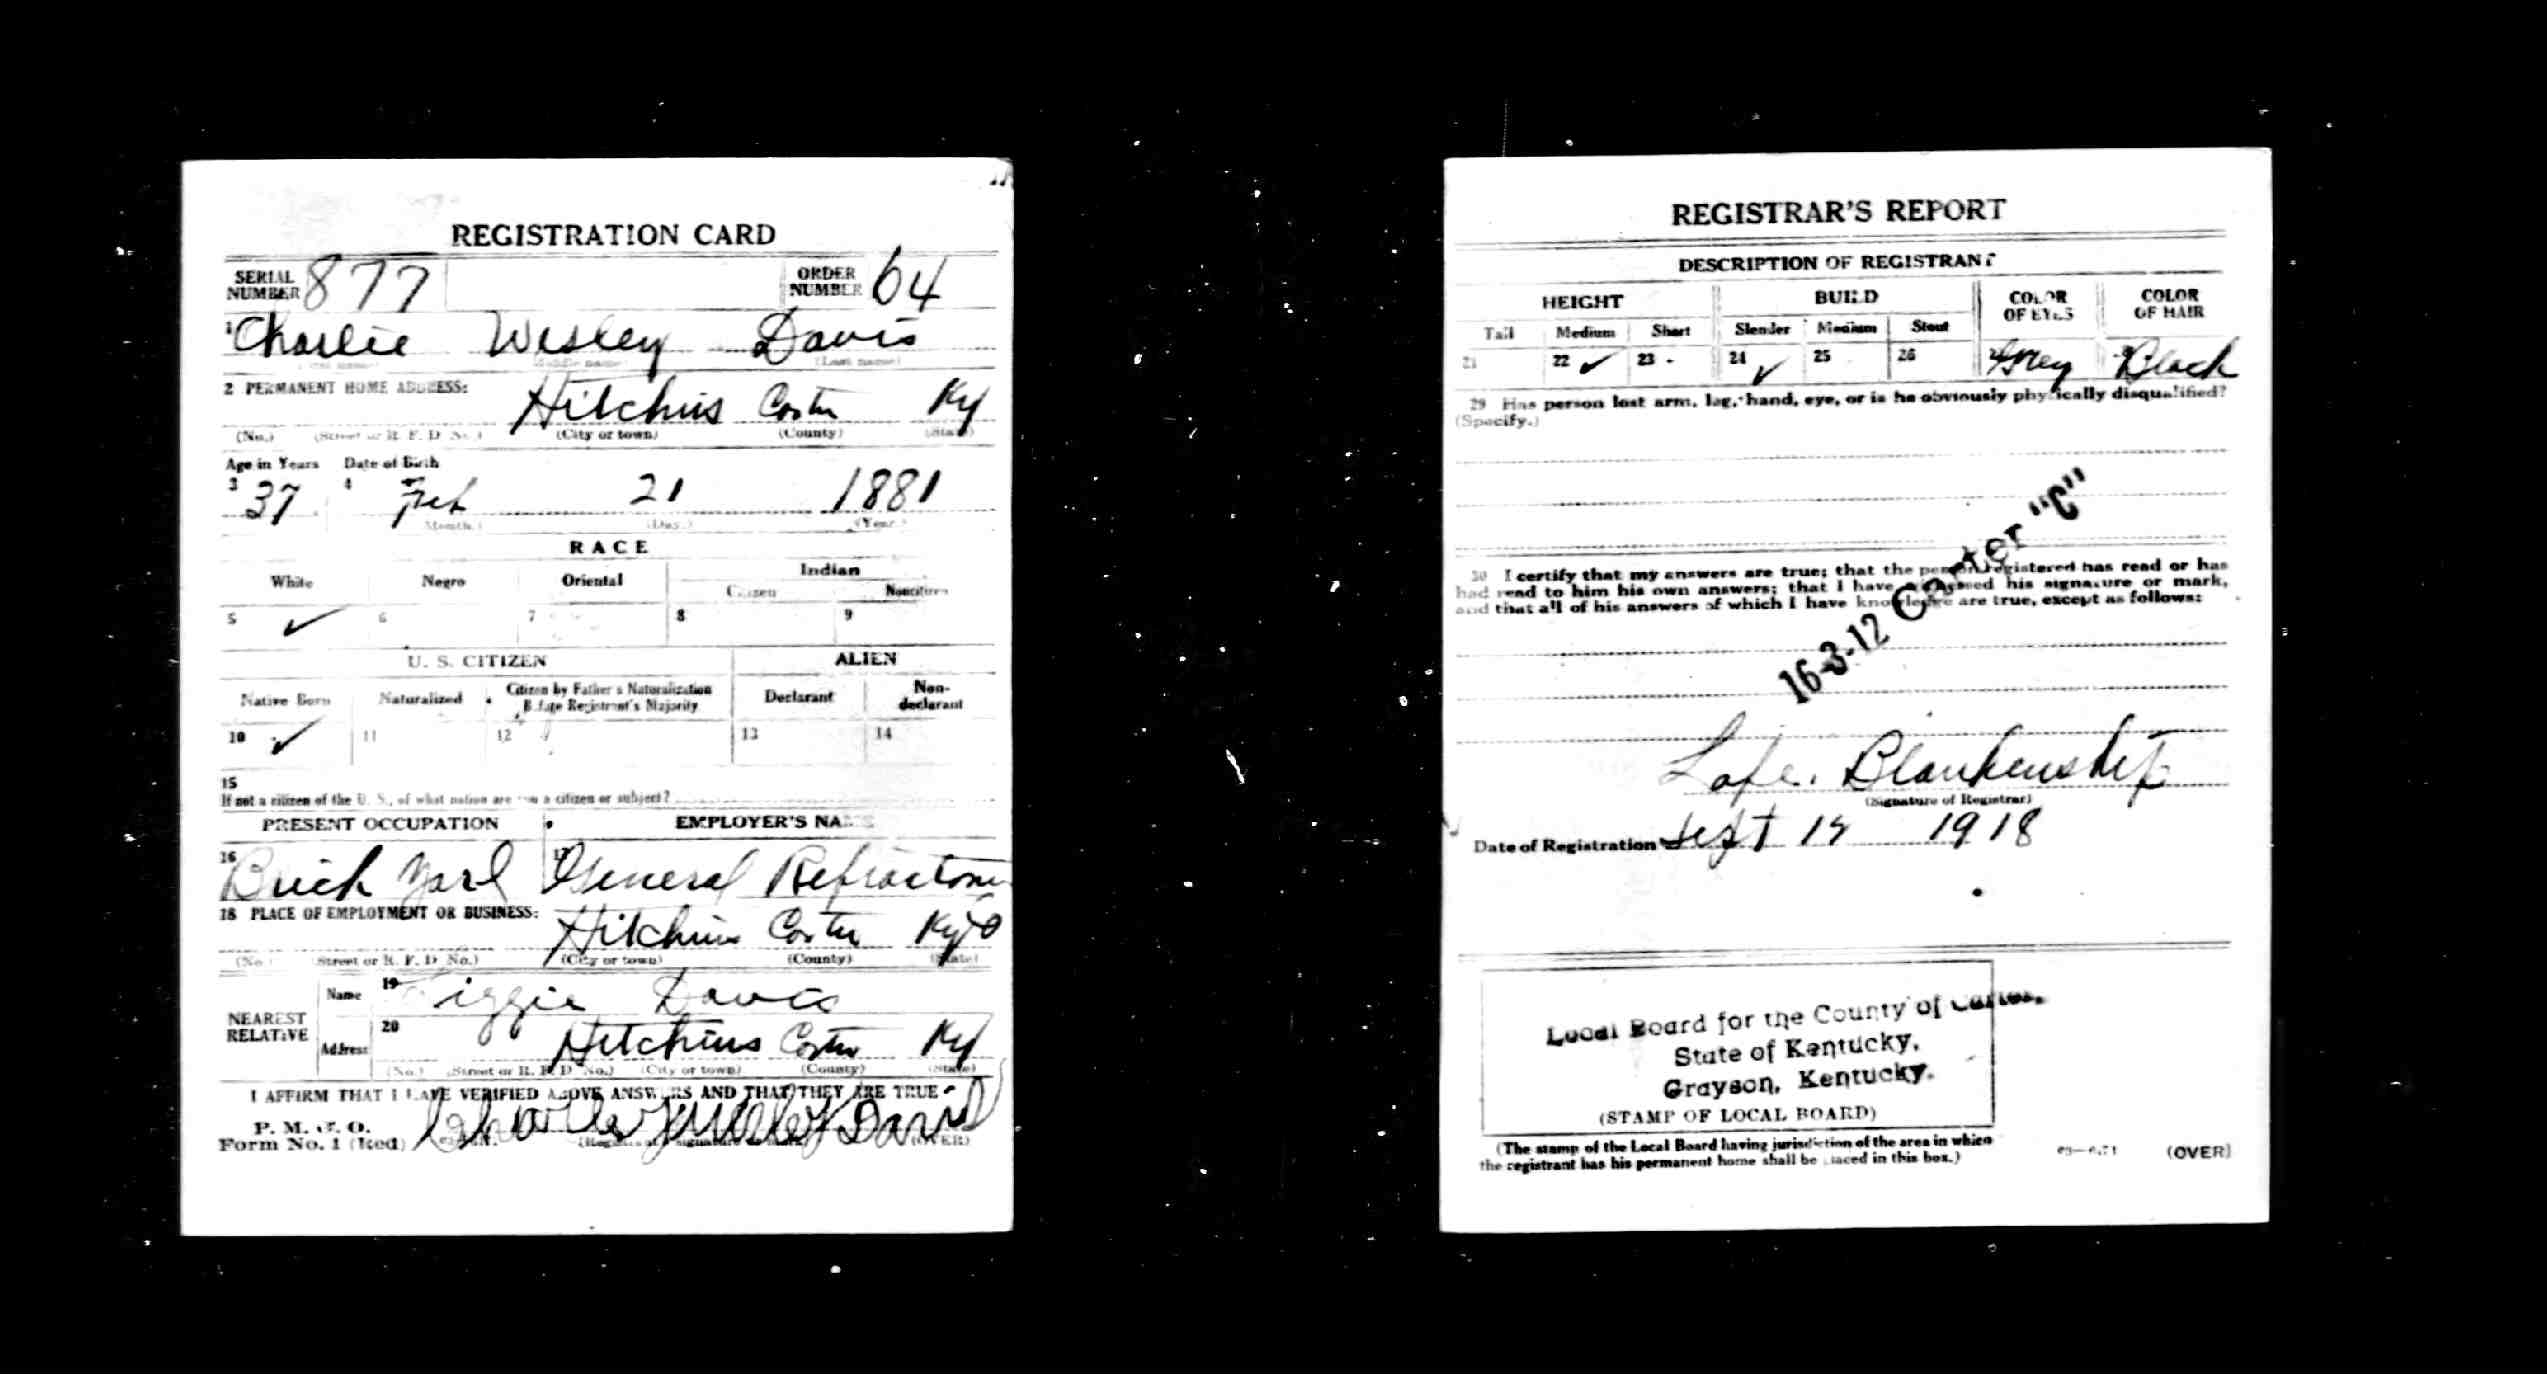 REGISTRATION CARD
SERIAL NUMBER 877 ORDER NUMBER 64
1 Charlie Wesley Davis
(Middle name) (Last name)
2 PERMANENT HOME ADDRESS:
Hitchins Carter Ky
(No.) (Street or R. F. D. No.) (City or town) (County) (State)
Age in Years Date of Birth
3 37 4 Feb 21 1881
(Month.) (Day.) (Year.)
RACE
White Negro Oriental Indian
Citizen Noncitizen
5 ✓ 6 7 8 9
U. S. CITIZEN ALIEN
Native Born Naturalized Citizen by Father's Naturalization Before Registrant's Majority Declarant Non-declarant
10 ✓ 11 12 13 14
15
If not a citizen of the U. S., of what nation are you a citizen or subject?
PRESENT OCCUPATION EMPLOYER'S NAME
16 Brick Yard General Refractories
18 PLACE OF EMPLOYMENT OR BUSINESS:
Hitchins Carter Ky
(No.) (Street or R. F. D. No.) (City or town) (County) (State)
NEAREST RELATIVE
Name 19 Lizzie Davis
Address 20 Hitchins Carter Ky
(No.) (Street or R. F. D. No.) (City or town) (County) (State)
I AFFIRM THAT I HAVE VERIFIED ABOVE ANSWERS AND THAT THEY ARE TRUE
P. M. G. O.
Form No. 1 (Red) Charlie Wesley Davis
(Registrant's signature or mark) (OVER)
REGISTRAR'S REPORT
DESCRIPTION OF REGISTRANT
HEIGHT BUILD COLOR OF EYES COLOR OF HAIR
Tall Medium Short Slender Medium Stout
21 22 ✓ 23 24 ✓ 25 26 Grey Black
29 Has person lost arm, leg, hand, eye, or is he obviously physically disqualified?
(Specify.)
30 I certify that my answers are true; that the person registered has read or has
had read to him his own answers; that I have witnessed his signature or mark,
and that all of his answers of which I have knowledge are true, except as follows:
16-3-12 Carter "C"
Lafe. Blankenship
(Signature of Registrar)
Date of Registration Sept 1918
Local Board for the County of Carter,
State of Kentucky,
Grayson, Kentucky.
(STAMP OF LOCAL BOARD)
(The stamp of the Local Board having jurisdiction of the area in which
the registrant has his permanent home shall be placed in this box.)
(OVER)